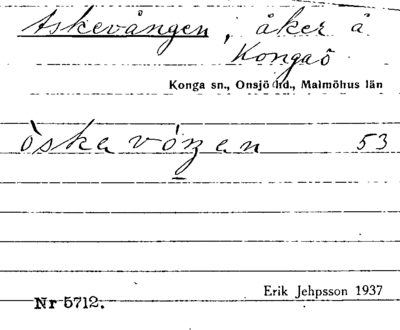 Askevången, åker å
Kongaö
Konga sn., Onsjö hd., Malmöhus län
òskavóŋen 53
Erik Jehpsson 1937
Nr 5712.